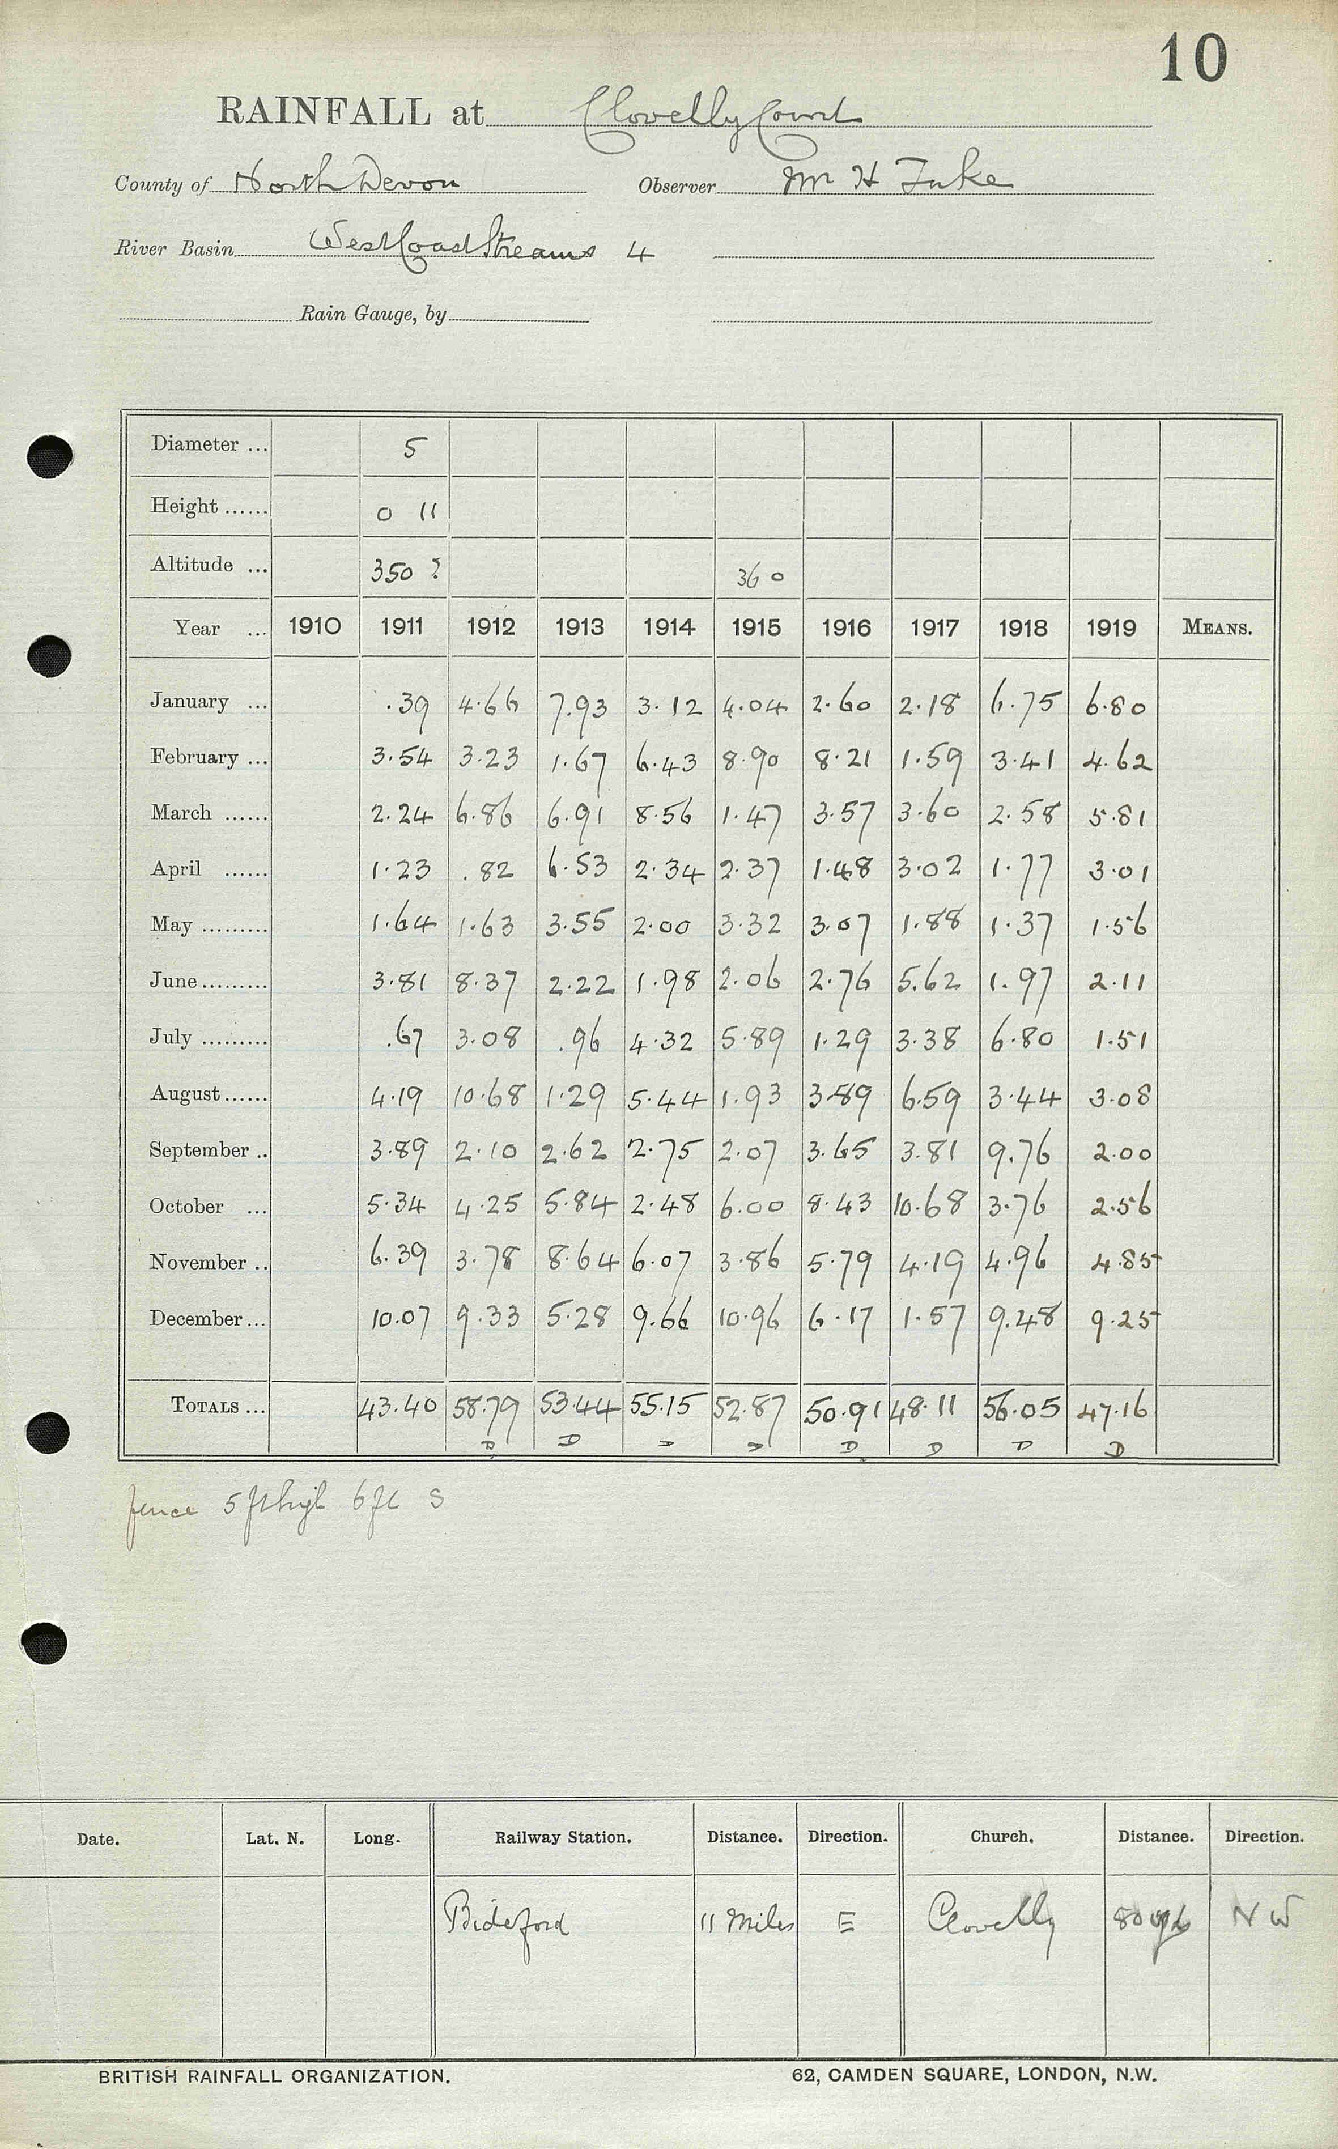 10
RAINFALL at Clovelly Court
County of North Devon Observer Mr H Tuke
River Basin West Coast Streams 4
Rain Gauge, by
Diameter ... 5
Height ...... 0 11
Altitude ... 350 ? 360
Year ... 1910 1911 1912 1913 1914 1915 1916 1917 1918 1919 MEANS.
January ... .39 4.66 7.93 3.12 4.04 2.60 2.18 6.75 6.80
February ... 3.54 3.23 1.67 6.43 8.90 8.21 1.59 3.41 4.62
March ...... 2.24 6.86 6.91 8.56 1.47 3.57 3.60 2.58 5.81
April ...... 1.23 .82 6.53 2.34 2.37 1.48 3.02 1.77 3.01
May ......... 1.64 1.63 3.55 2.00 3.32 3.07 1.88 1.37 1.56
June ......... 3.81 8.37 2.22 1.98 2.06 2.76 5.62 1.97 2.11
July ......... .67 3.08 .96 4.32 5.89 1.29 3.38 6.80 1.51
August ...... 4.19 10.68 1.29 5.44 1.93 3.89 6.59 3.44 3.08
September .. 3.89 2.10 2.62 2.75 2.07 3.65 3.81 9.76 2.00
October ... 5.34 4.25 5.84 2.48 6.00 8.43 10.68 3.76 2.56
November .. 6.39 3.78 8.64 6.07 3.86 5.79 4.19 4.96 4.85
December ... 10.07 9.33 5.28 9.66 10.96 6.17 1.57 9.48 9.25
TOTALS ... 43.40 58.79 53.44 55.15 52.87 50.91 48.11 56.05 47.16
D D D D D D D D
fence 5 ft high 6 ft S
Date. Lat. N. Long. Railway Station. Distance. Direction. Church. Distance. Direction.
Bideford 11 Miles E Clovelly 80 yds N W
BRITISH RAINFALL ORGANIZATION. 62, CAMDEN SQUARE, LONDON, N.W.